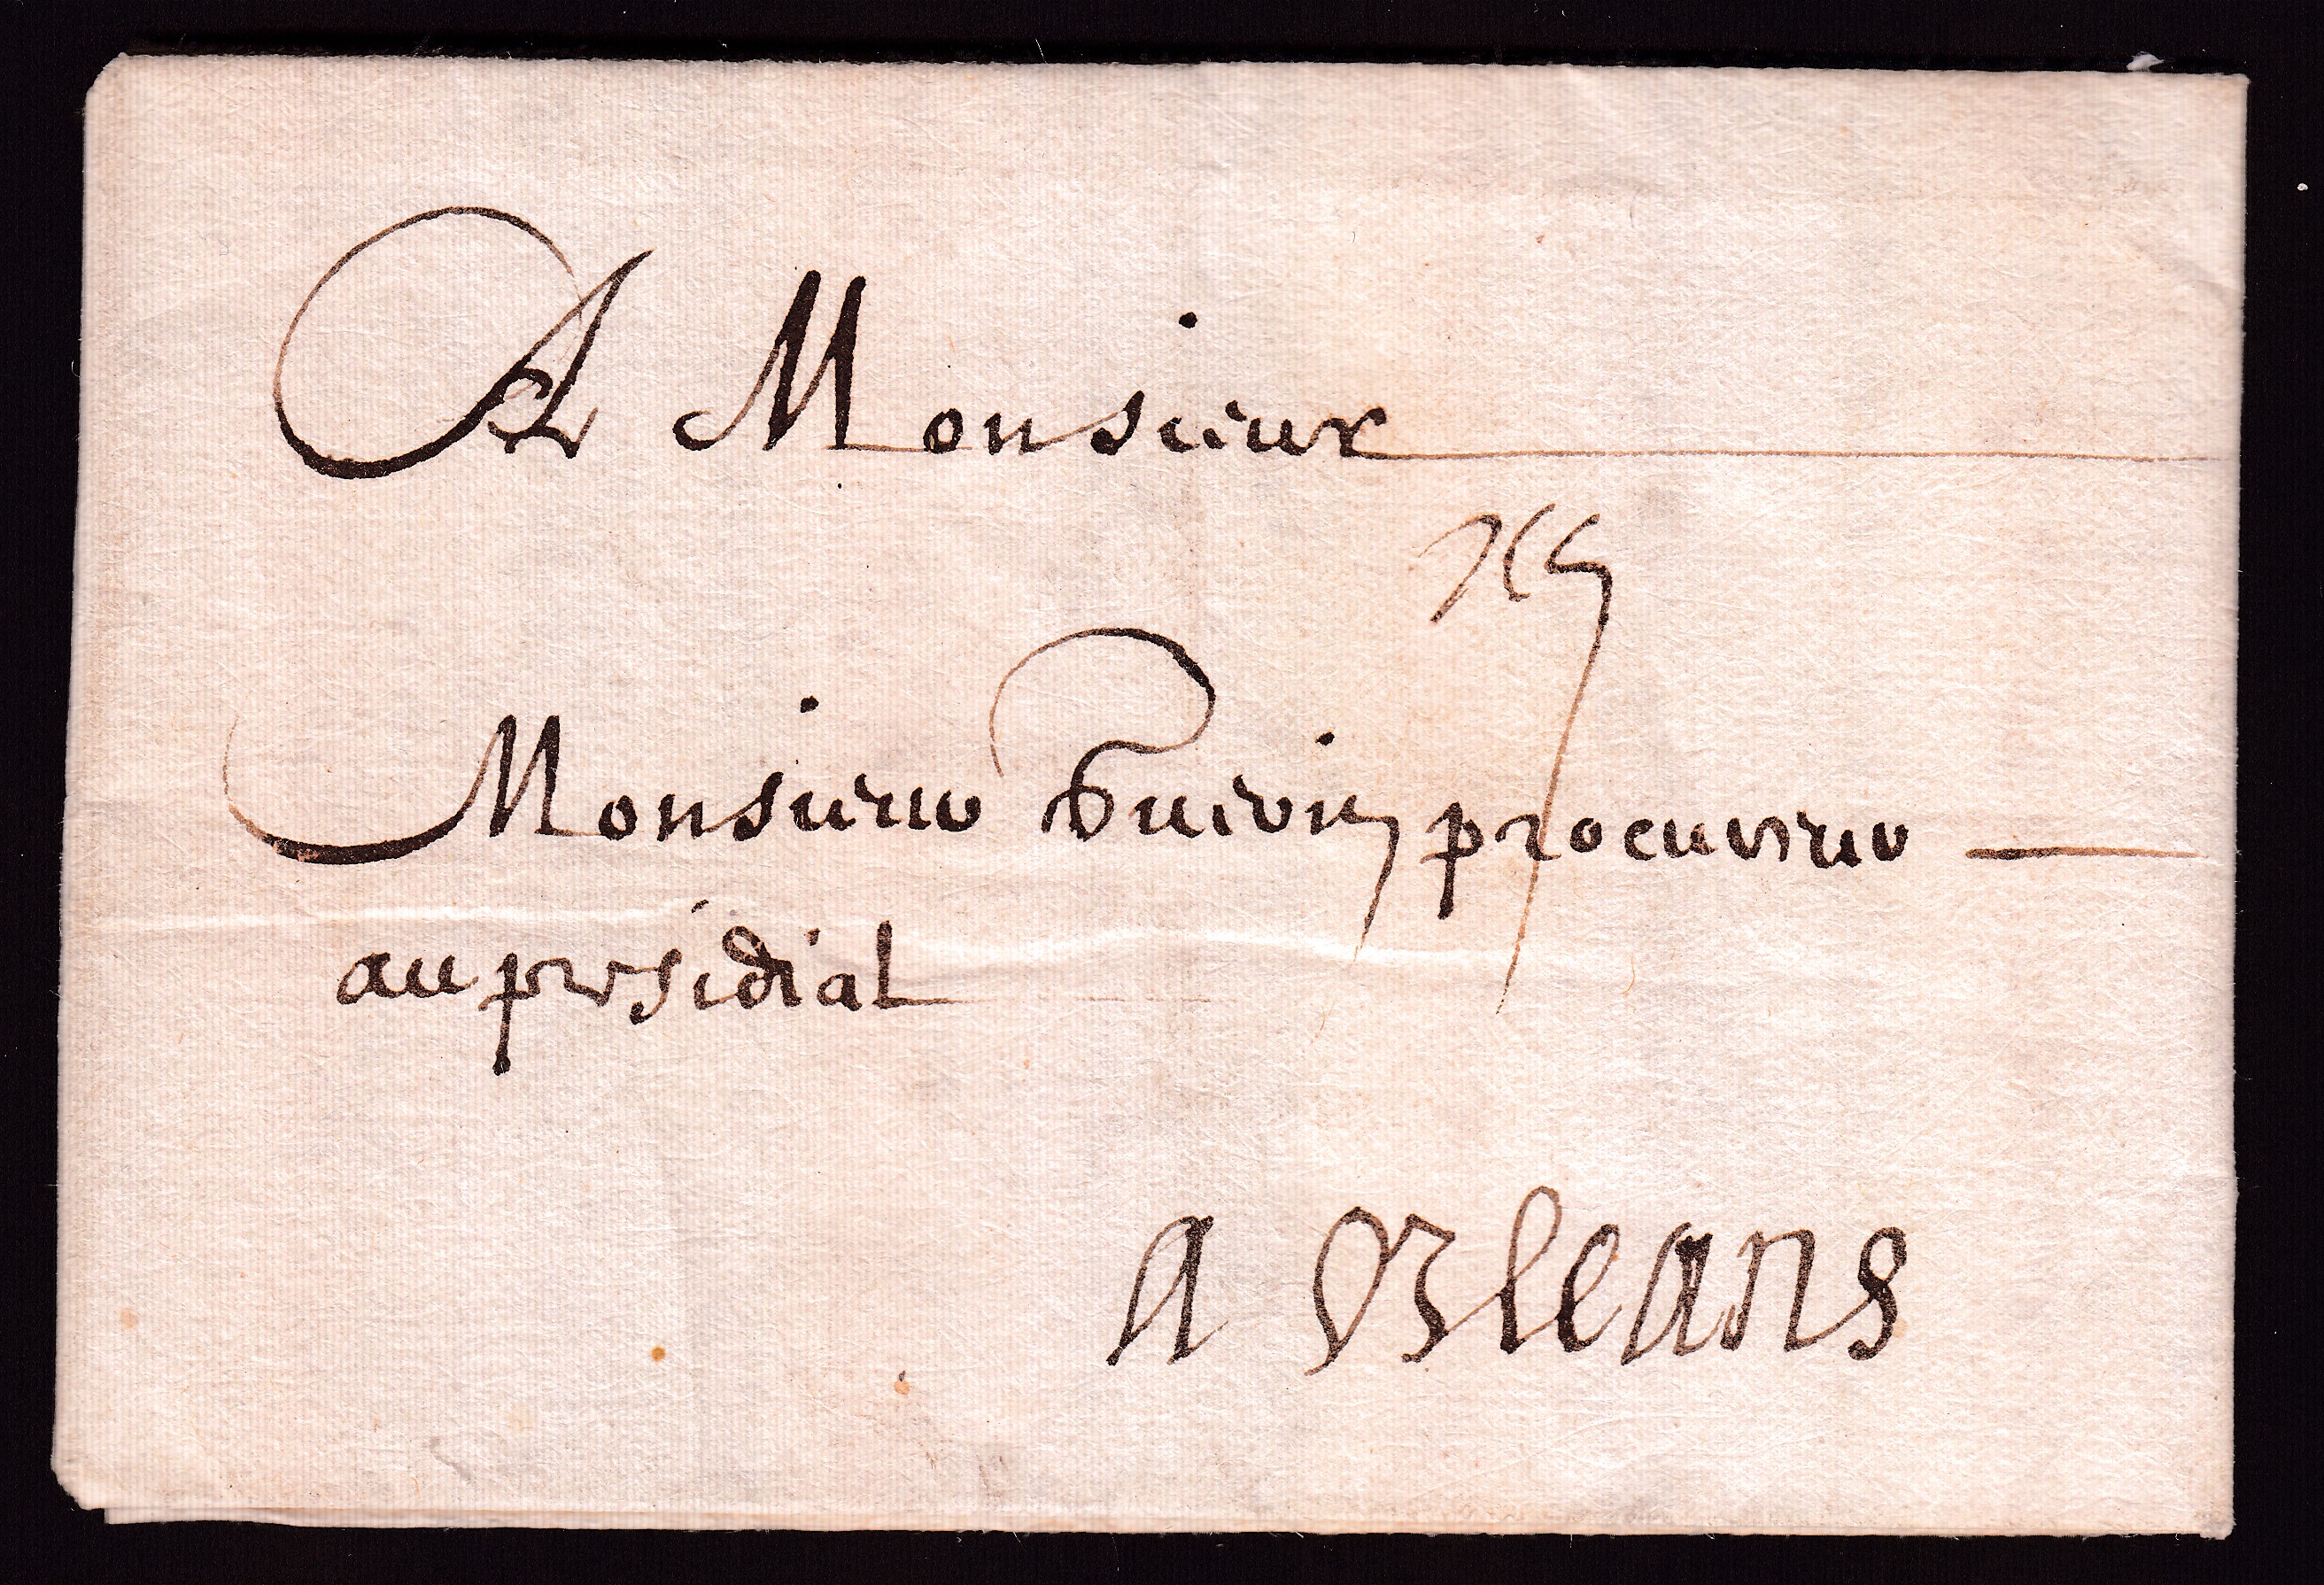 A Monsieur
Monsieur Guerin procureur
au presidial
a Orleans